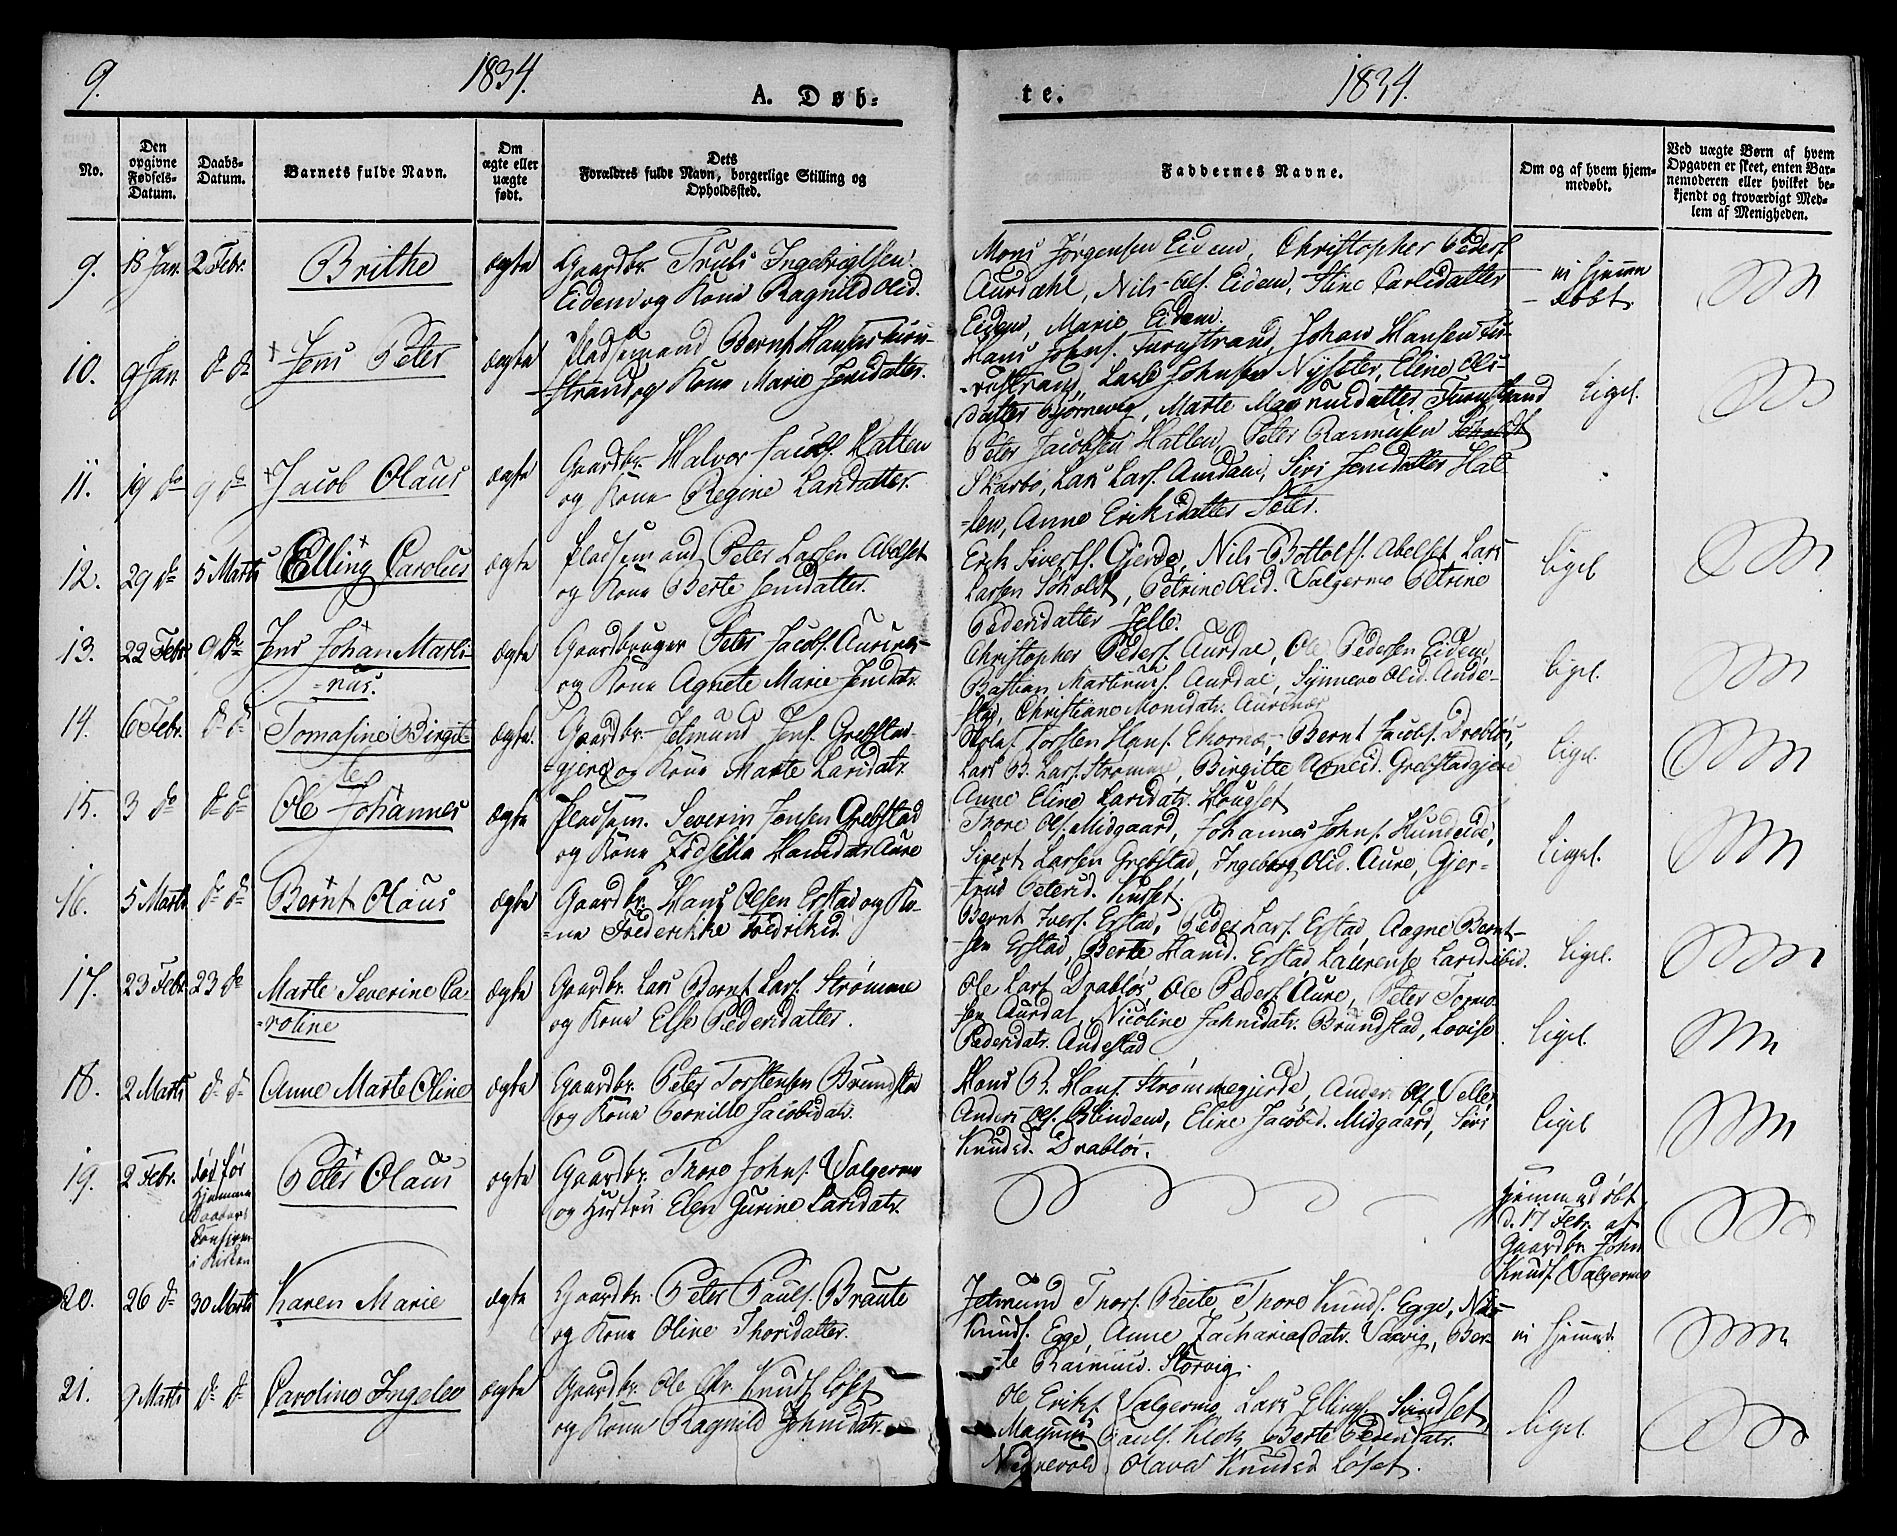 9.
1834.
A. Døb-
te.
1834.
No.
Den opgivne Fødsels-Datum.
Daabs-Datum.
Barnets fulde Navn.
Om ægte eller uægte født.
Dets Forældres fulde Navn, borgerlige Stilling og Opholdssted.
Faddernes Navne.
Om og af hvem hjemmedøbt.
Ved uægte Børn af hvem Opgaven er skeet, enten Barnemoderen eller hvilket bekjendt og troværdigt Medlem af Menigheden.
9. 18 Jan. 2 Febr. Brithe ægte Gaardbr. Truls Ingebrigtsen
Eidem og Kone Ragnild Olsd.
Mons Jørgensen Eidem, Christopher Peders.
Aurdahl, Nils Ols. Eidem, Stine Carlsdatter
Eidem, Marie Eidem.
ei hjemme
døbt.
10. 9 Jan. d° d° Jens Peter ægte Pladsemand Bernt Hans.
strand og Kone Marie Jensdatter.
Hans Johns. Furustrand, Johan Hansen
Lars Johnsen Nysæter, Eline Ols-
datter Bjørnevig, Marte Magnusdatter Furustrand
ligel.
11. 19 d° 9 d° Jacob Olaus ægte Gaardbr. Halvor Jacobs. Hatlen
og Kone Regine Larsdatter.
Peter Jacobsen Hatlen, Peter Rasmusen
Skarbø, Lars Lars. Amdam, Siri Jensdatter Hat-
len, Anne Eriksdatter Sæter.
12. 29 d° 5 Marts Elling Carolus ægte Pladsemand Peter Larsen Abelset
og Kone Berte Jensdatter.
Erik Siverts. Gjerde, Nils Bottolfs. Abelset, Lars
Larsen Søholdt, Petrine Olsd. Valgermo, Petrine
Pedersdatter Velle.
ligel
13. 22 Febr. 9 d° Jens Johan Marti-
nus.
ægte Gaardbruger Peter Jacobs. Aurenes
og Kone Agnete Marie Jensdatr.
Christopher Peders. Aurdal, Ole Pedersen Eidem,
Bastian Martinus. Aurdal, Synneve Olsd. Ande-
stad, Christiane Monsdatr. Aurenes
ligel.
14. 6 Febr. d° d° Tomasine Birgit-
te
ægte. Gaardbr. Jetmund Jens. Grebstad-
gjerd og Kone Marte Larsdatr.
Torsten Hans. Ekornæs, Bernt Jacobs. Drabløs,
Lars B. Lars. Strømme, Birgitte Grebstadgjerd
Anne Eline Larsdatr. Hougset
ligel.
15. 3 d° d° d° Ole Johannes ægte Pladsem. Severin Jensen Grebstad
og Kone Zidsilia Hansdatr Aure
Thore Ols. Midgaard, Johannes Johns. Hundeide,
Sivert Larsen Grebstad, Ingeborg Olsd. Aure, Gjer-
trud Petersd.
ligel.
16. 5 Marts d° d° Bernt Olaus ægte Gaardbr. Hans Olsen Erstad og Ko-
ne Frederikke Fredriksd.
Bernt Ivers. Erstad, Peder Lars. Erstad, Aagne Bernt-
sen Erstad, Berte Hansd. Erstad, Laurense Larsd. ibid.
ligel.
17. 23 Febr. 23 d° Marte Severine Ca-
roline
ægte Gaardbr. Lars Bernt Lars. Strømme
og Kone Else Pedersdatter.
Ole Lars. Drabløs, Ole Peders. Aure, Peter Tormo-
sen Aurdal, Nicoline Johnsdatr. Brundstad, Lovise
Pedersdatr. Andestad
ligel.
18. 2 Marts d° d° Anne Marte Oline ægte Gaardbr. Peter Torstensen Brundstad
og Kone Pernille Jacobsdatr.
Hans B. Hans. Strømmegjerde, Anders Ols. Velle,
Anders Ols. Blindem, Eline Jacobsd. Midgaard, Siri
Knudsd. Drabløs.
ligel
19. 2 Febr. død før
hjemme
Daabens
i Kirken
Peter Olaus ægte Gaardbr. Thore Johns. Valgermo
og Hustru Elen Gurine Larsdatr.
hjemmedøbt
d. 17 Febr. af
Gaardbr. John
Knuds. Valgermo
20. 26 d° 30 Marts Karen Marie ægte Gaardbr. Peter Pauls. Braute
og Kone Oline Thorsdatter.
Jetmund Thors. Reite, Thore Knuds. Egge, Nils
Knuds. Egge, Anne Zachariasdatr. Vasvig, Ber-
te Rasmusd. Storvig.
ei hjemmed.
21. 9 Marts d° d° Caroline Ingeleo ægte Gaardbr. Ole Chr. Knuds. Løset
og Kone Ragnild Johnsdatr.
Ole Eriks. Valgermo, Lars Ellings. Svindset,
Magnus Pauls. Klok, Berte Pedersdatr.
Nedrevold, Olava Knudsd. Løset.
ligel.